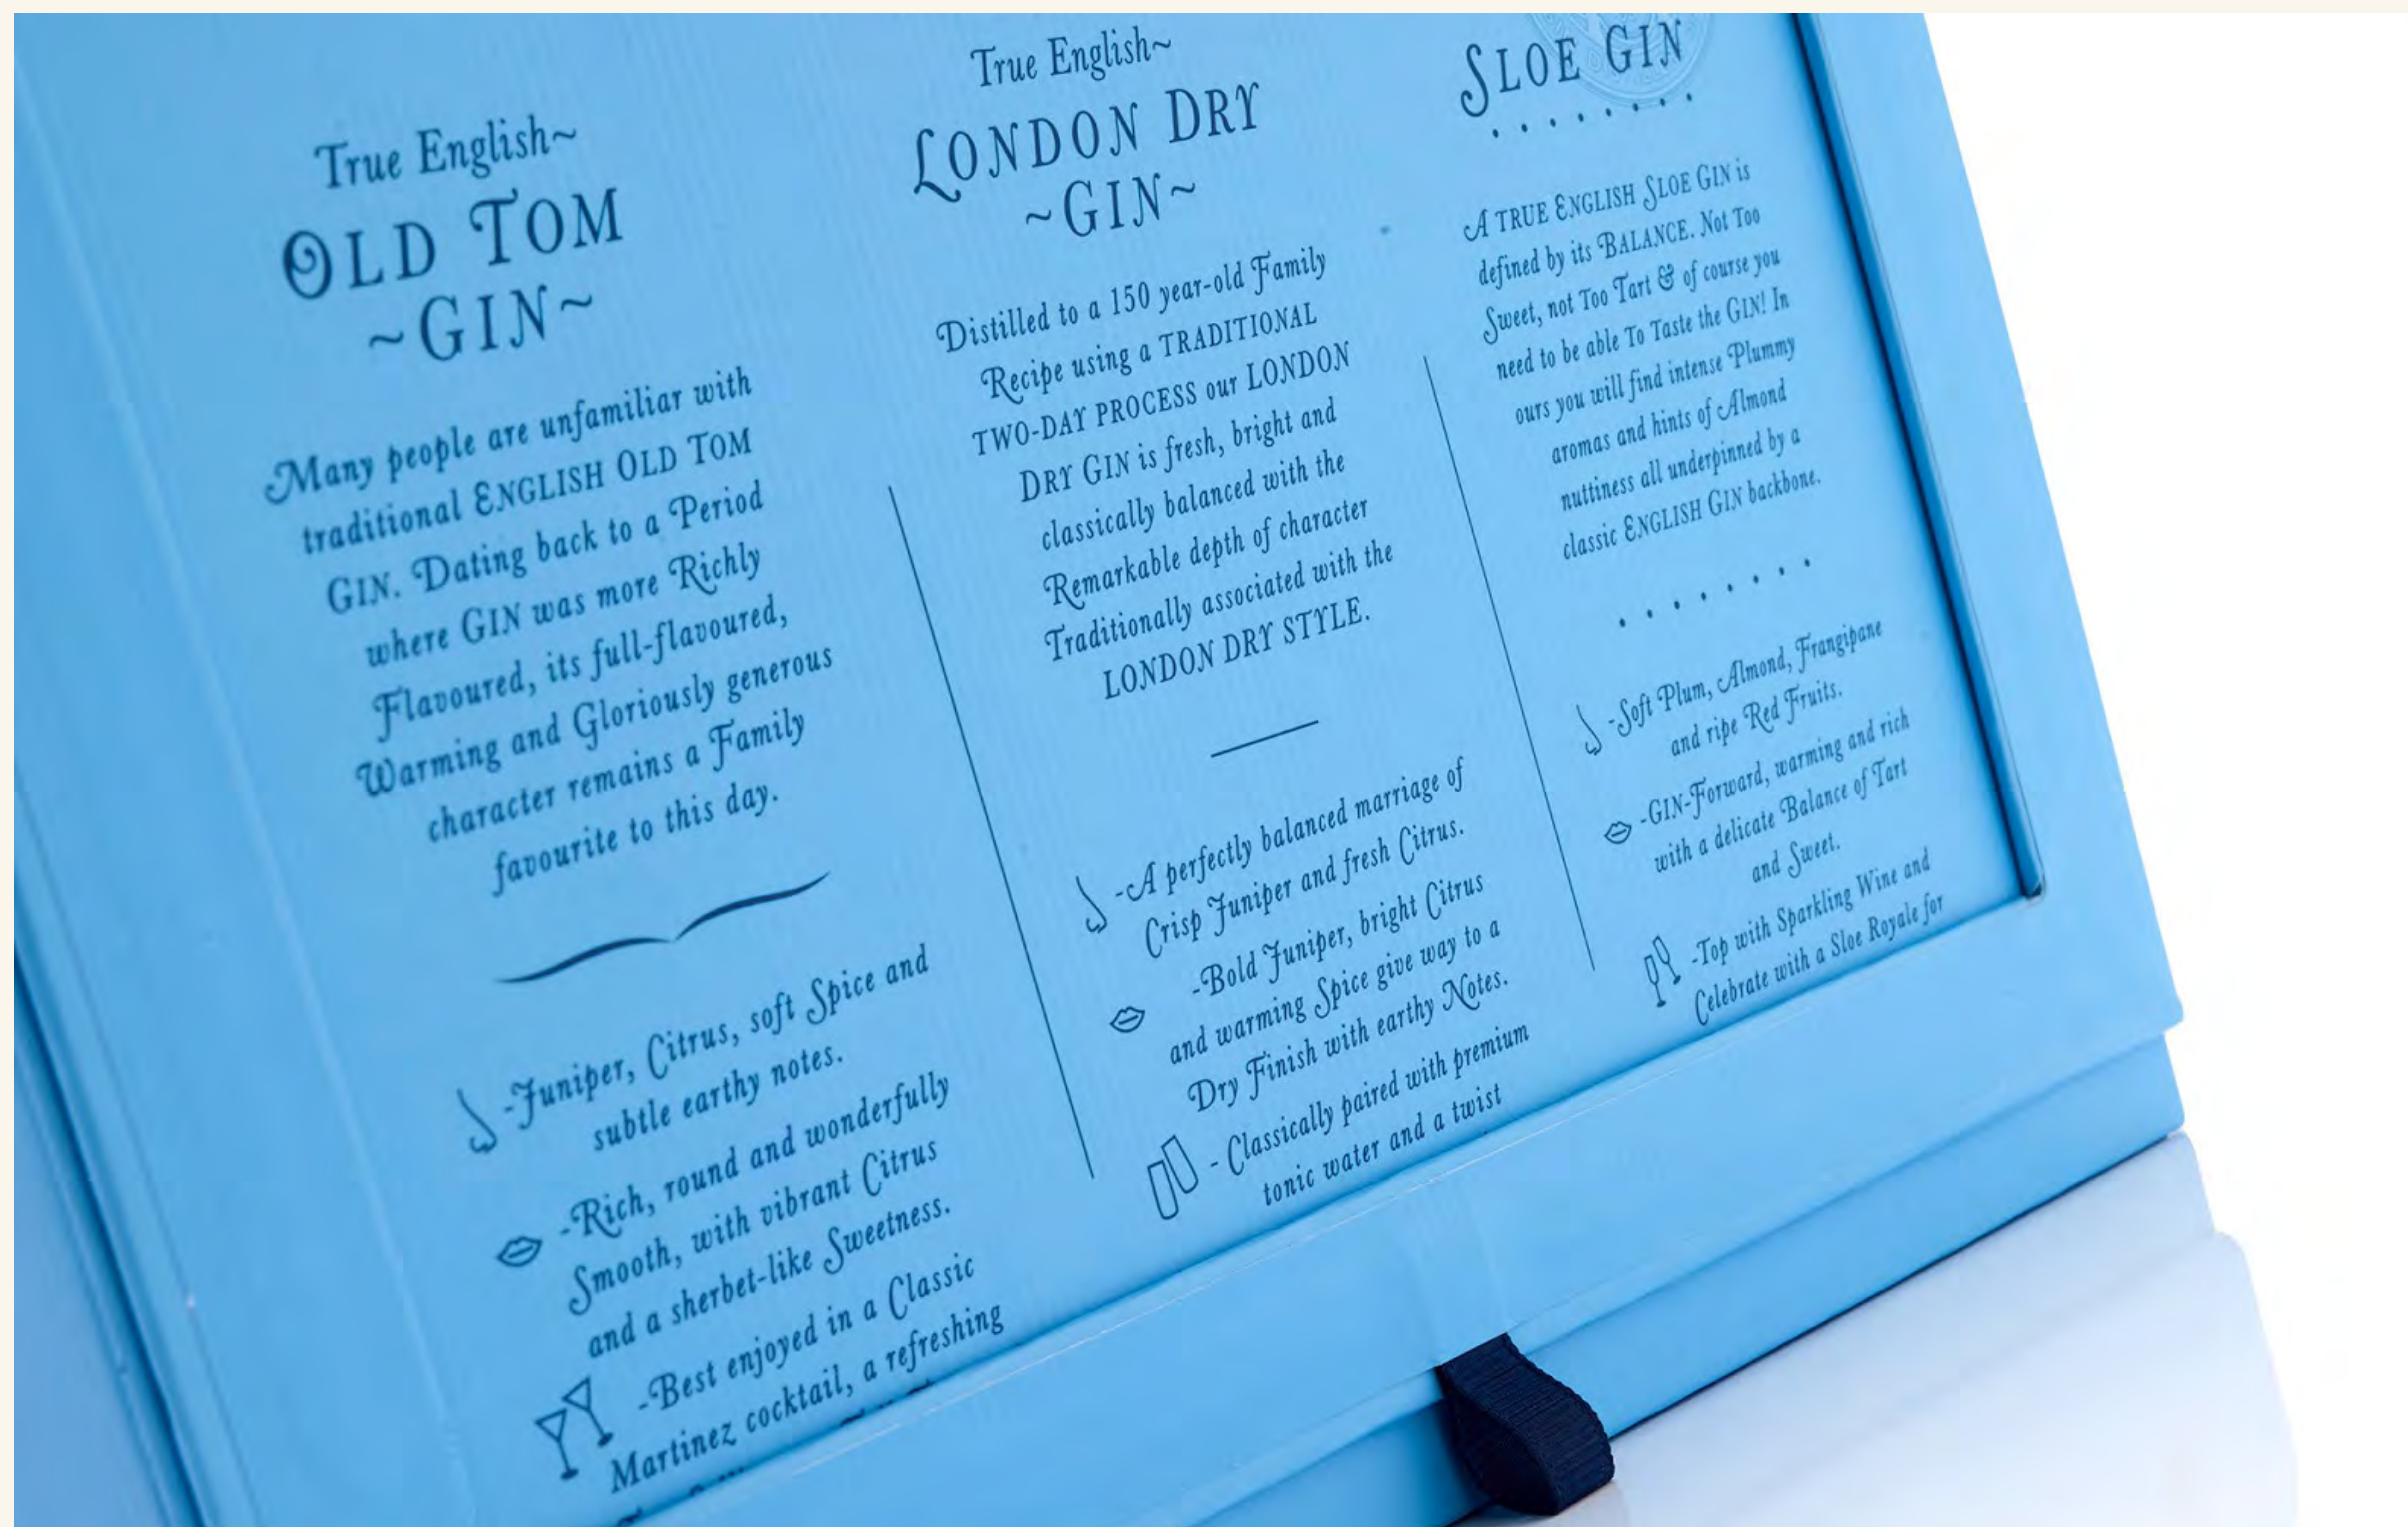 True English~
OLD TOM
~GIN~
Many people are unfamiliar with
traditional ENGLISH OLD TOM
GIN. Dating back to a Period
where GIN was more Richly
Flavoured, its full-flavoured,
Warming and Gloriously generous
character remains a Family
favourite to this day.
-Juniper, Citrus, soft Spice and
subtle earthy notes.
-Rich, round and wonderfully
Smooth, with vibrant Citrus
and a sherbet-like Sweetness.
-Best enjoyed in a Classic
Martinez cocktail, a refreshing
True English~
LONDON DRY
~GIN~
Distilled to a 150 year-old Family
Recipe using a TRADITIONAL
TWO-DAY PROCESS our LONDON
DRY GIN is fresh, bright and
classically balanced with the
Remarkable depth of character
Traditionally associated with the
LONDON DRY STYLE.
-A perfectly balanced marriage of
Crisp Juniper and fresh Citrus.
-Bold Juniper, bright Citrus
and warming Spice give way to a
Dry Finish with earthy Notes.
- Classically paired with premium
tonic water and a twist
SLOE GIN
A TRUE ENGLISH SLOE GIN is
defined by its BALANCE. Not Too
Sweet, not Too Tart & of course you
need to be able To Taste the GIN! In
ours you will find intense Plummy
aromas and hints of Almond
nuttiness all underpinned by a
classic ENGLISH GIN backbone.
-Soft Plum, Almond, Frangipane
and ripe Red Fruits.
-GIN-Forward, warming and rich
with a delicate Balance of Tart
and Sweet.
-Top with Sparkling Wine and
Celebrate with a Sloe Royale for